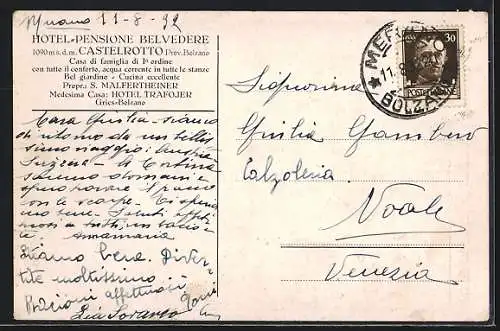 Merano 11-8-32
HOTEL-PENSIONE BELVEDERE
1090 m s.d.m. CASTELROTTO Prov. Bolzano
Casa di famiglia di Iº ordine
con tutto il conforto, acqua corrente in tutte le stanze
Bel giardino - Cucina eccellente
Propr.: S. MALFERTHEINER
Medesima Casa: HOTEL TRAFOJER
Gries-Bolzano
Cara Giulia siamo
di ritorno da un bellis
simo viaggio: Austria
Svizzera - A Cortina
saremo domani e
spero trovare il pacco
con le scarpe. Ti spero
bene. Saluti affet
tuosi a tutti, un bacio
a te Annamaria
Stiamo bene. Diver
tite moltissimo
Bacioni affettuosi
Lia Soranzo
MERANO
11.8
BOLZANO
30
POSTE ITALIANE
Signorina
Giulia Gambero
Calzoleria
Noale
Venezia